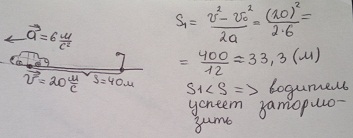 a⃗ = 6 м/с²
v⃗ = 20 м/с
S = 40 м
S₁ = (v² − v₀²)/2a = (20)²/(2·6) =
= 400/12 ≈ 33,3 (м)
S₁ < S => водитель
успеет затормо-
зить